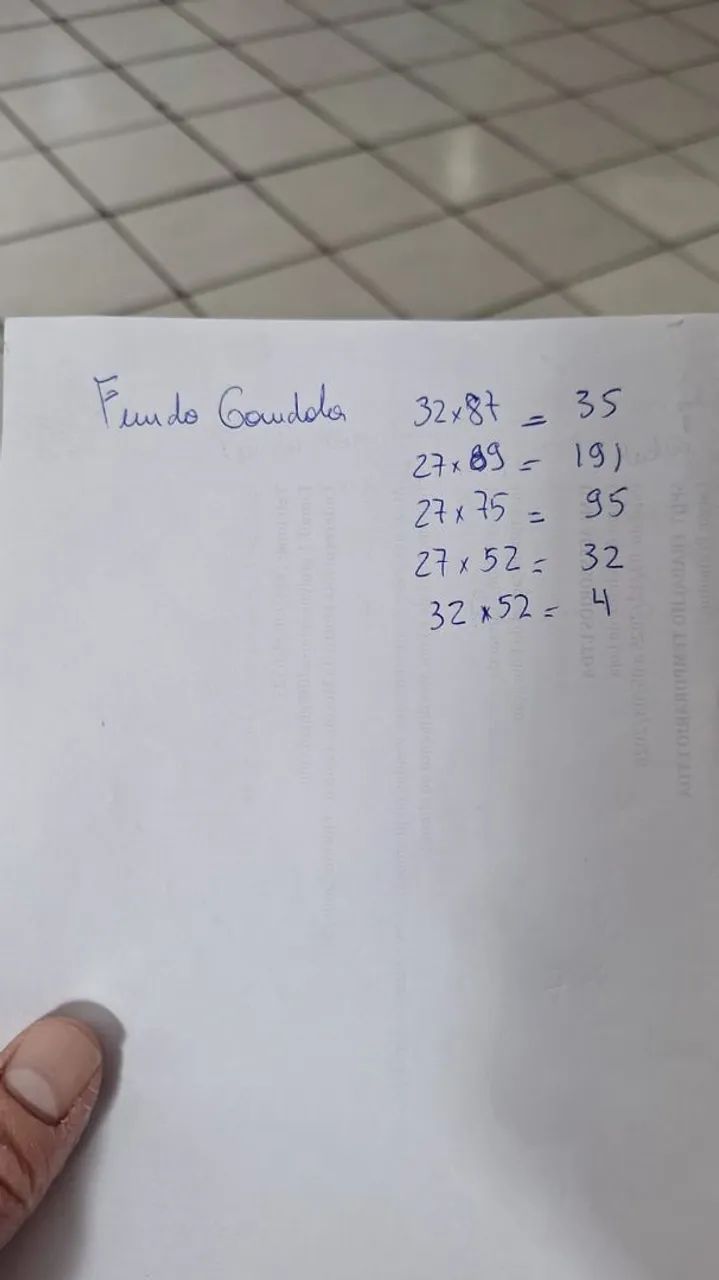 Fundo Gondola 32x87 = 35
27x89 = 191
27x75 = 95
27x52 = 32
32x52 = 4